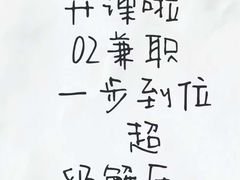 开课啦
02兼职
一步到位
超
级解压